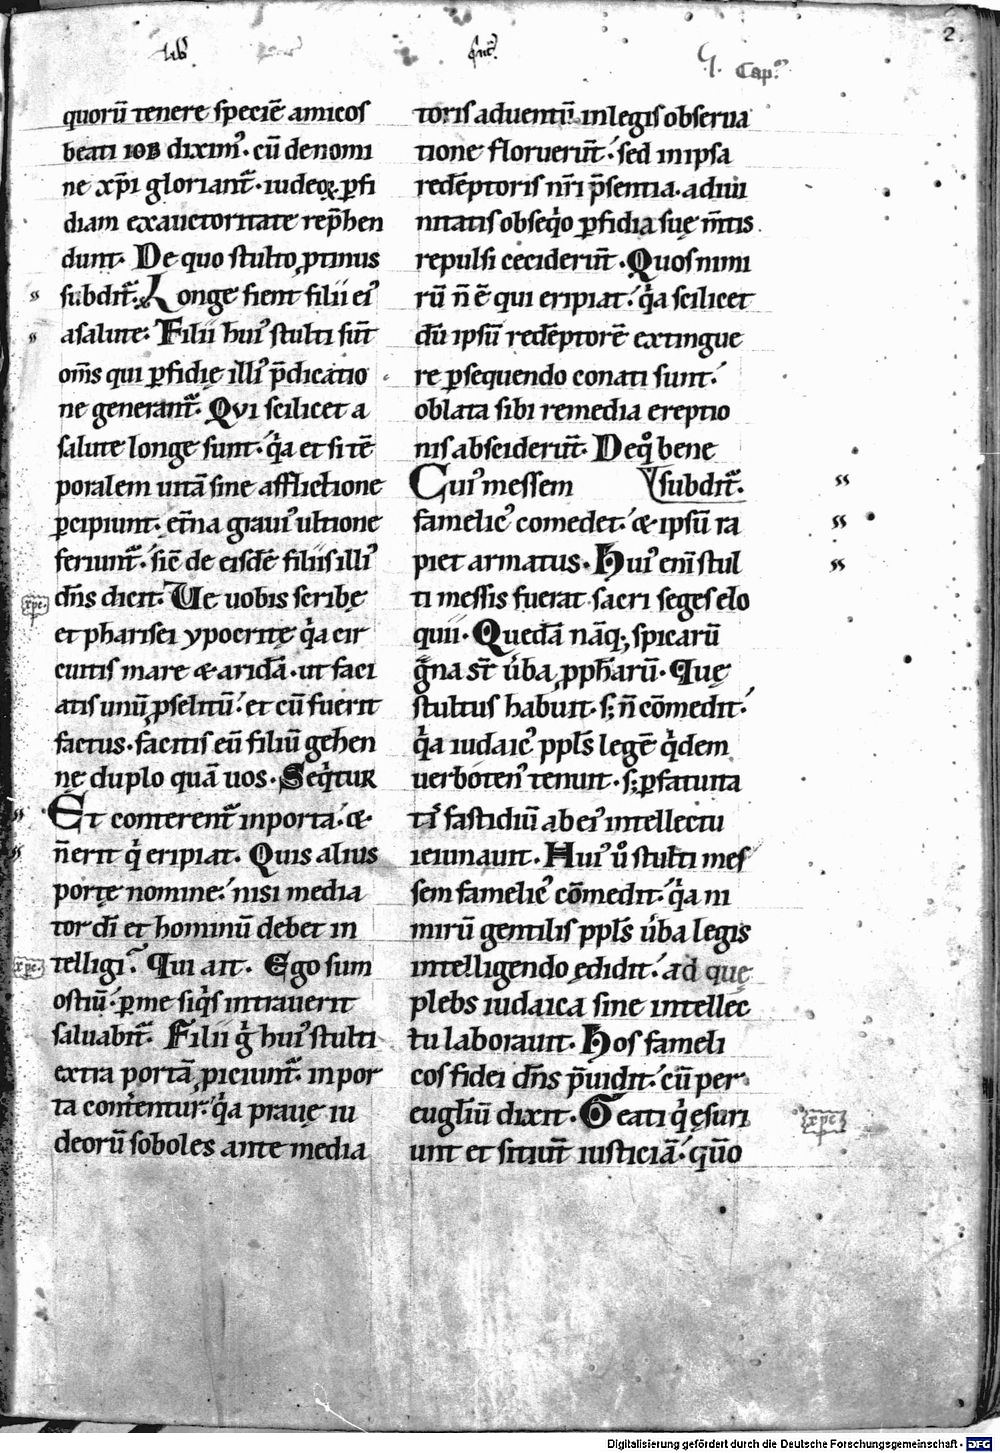 2.
lib̅ q̅nt̅ꝰ. I. Cap.ᵐ
quorū tenere speciē amicos
beati IOB diximꝰ· cū denomi
ne xp̅i gloriant᷑· iudeoꝝ ꝑfi
diam exauctoritate rep̅hen
dunt· De quo stulto ꝓtinus
subdit᷑· Longe fient filii eiꝰ
asalute· Filii huiꝰ stulti sūt
om̅s qui ꝑfidię illiꝰ p̅dicatio
ne generant᷑· Qvi scilicet a
salute longe sunt· qͥa et si tē
poralem uitā sine afflictione
ꝑcipiunt· et̅na grauiꝰ ultione
feriunt᷑· sic̅ de eisdē filiis illiꝰ
xpc.
dn̅s dicit· Ve uobis scribę
et pharisei ypocritę qͥa cir
cuitis mare & aridā· ut faci
atis unū ꝓselitū· et cū fuerit
factus· facitis eū filiū gehen
nę duplo quā uos· Seqͥtur
Et conterent᷑ inporta· &
n̅ erit qͥ eripiat· Quis alius
portę nomine· nisi media
tor di̅ et hominū debet in
xpc.
telligi· Qui ait· Ego sum
ostiū· ꝑme siqͥs intrauerit
saluabit᷑· Filii gͦ huiꝰ stulti
extra portā ꝓficiunt᷑· inpor
ta conterentur· qͥa prauę iu
deorū soboles ante media
toris aduentū inlegis obserua
tione floruerūt· sed inipsa
redēptoris nr̅i p̅sentia· adiui
nitatis obseqͥo ꝑfidia suę m̅tis
repulsi ceciderūt· Quos nimi
rū n̅ ē qui eripiat· qͥa scilicet
dū ipsū redēptorē extingue
re ꝑsequendo conati sunt·
oblata sibi remedia ereptio
nis absciderūt· Deqͦ bene
Cuiꝰ messem subdit᷑·
famelicꝰ comedet· & ipsū ra
piet armatus· Huiꝰ eni̅ stul
ti messis fuerat sacri seges elo
quii· Quedā nāq; spicarū
gͣna st̅ u̅ba ꝓpharū· Quę
stultus habuit· s; n̅ cōmedit·
qͥa iudaicꝰ ppl̅s legē qͥdem
uerbotenꝰ tenuit· s; ꝑfatuita
tiſ fastidiū ab eiꝰ intellectu
ieiunauit· Huiꝰ uͦ stulti mes
sem famelicꝰ cōmedit· qͥa ni
mirū gentilis ppl̅s u̅ba legis
intelligendo ędidit· ad quę
plebs iudaica sine intellec
tu laborauit· Hos fameli
cos fidei dn̅s p̅uidit· cū per
euugl̅iū dixit· Beati qͥ ęsuri
xpc
unt et sitiūt iusticiā· qm̅o
Digitalisierung gefördert durch die Deutsche Forschungsgemeinschaft - DFG